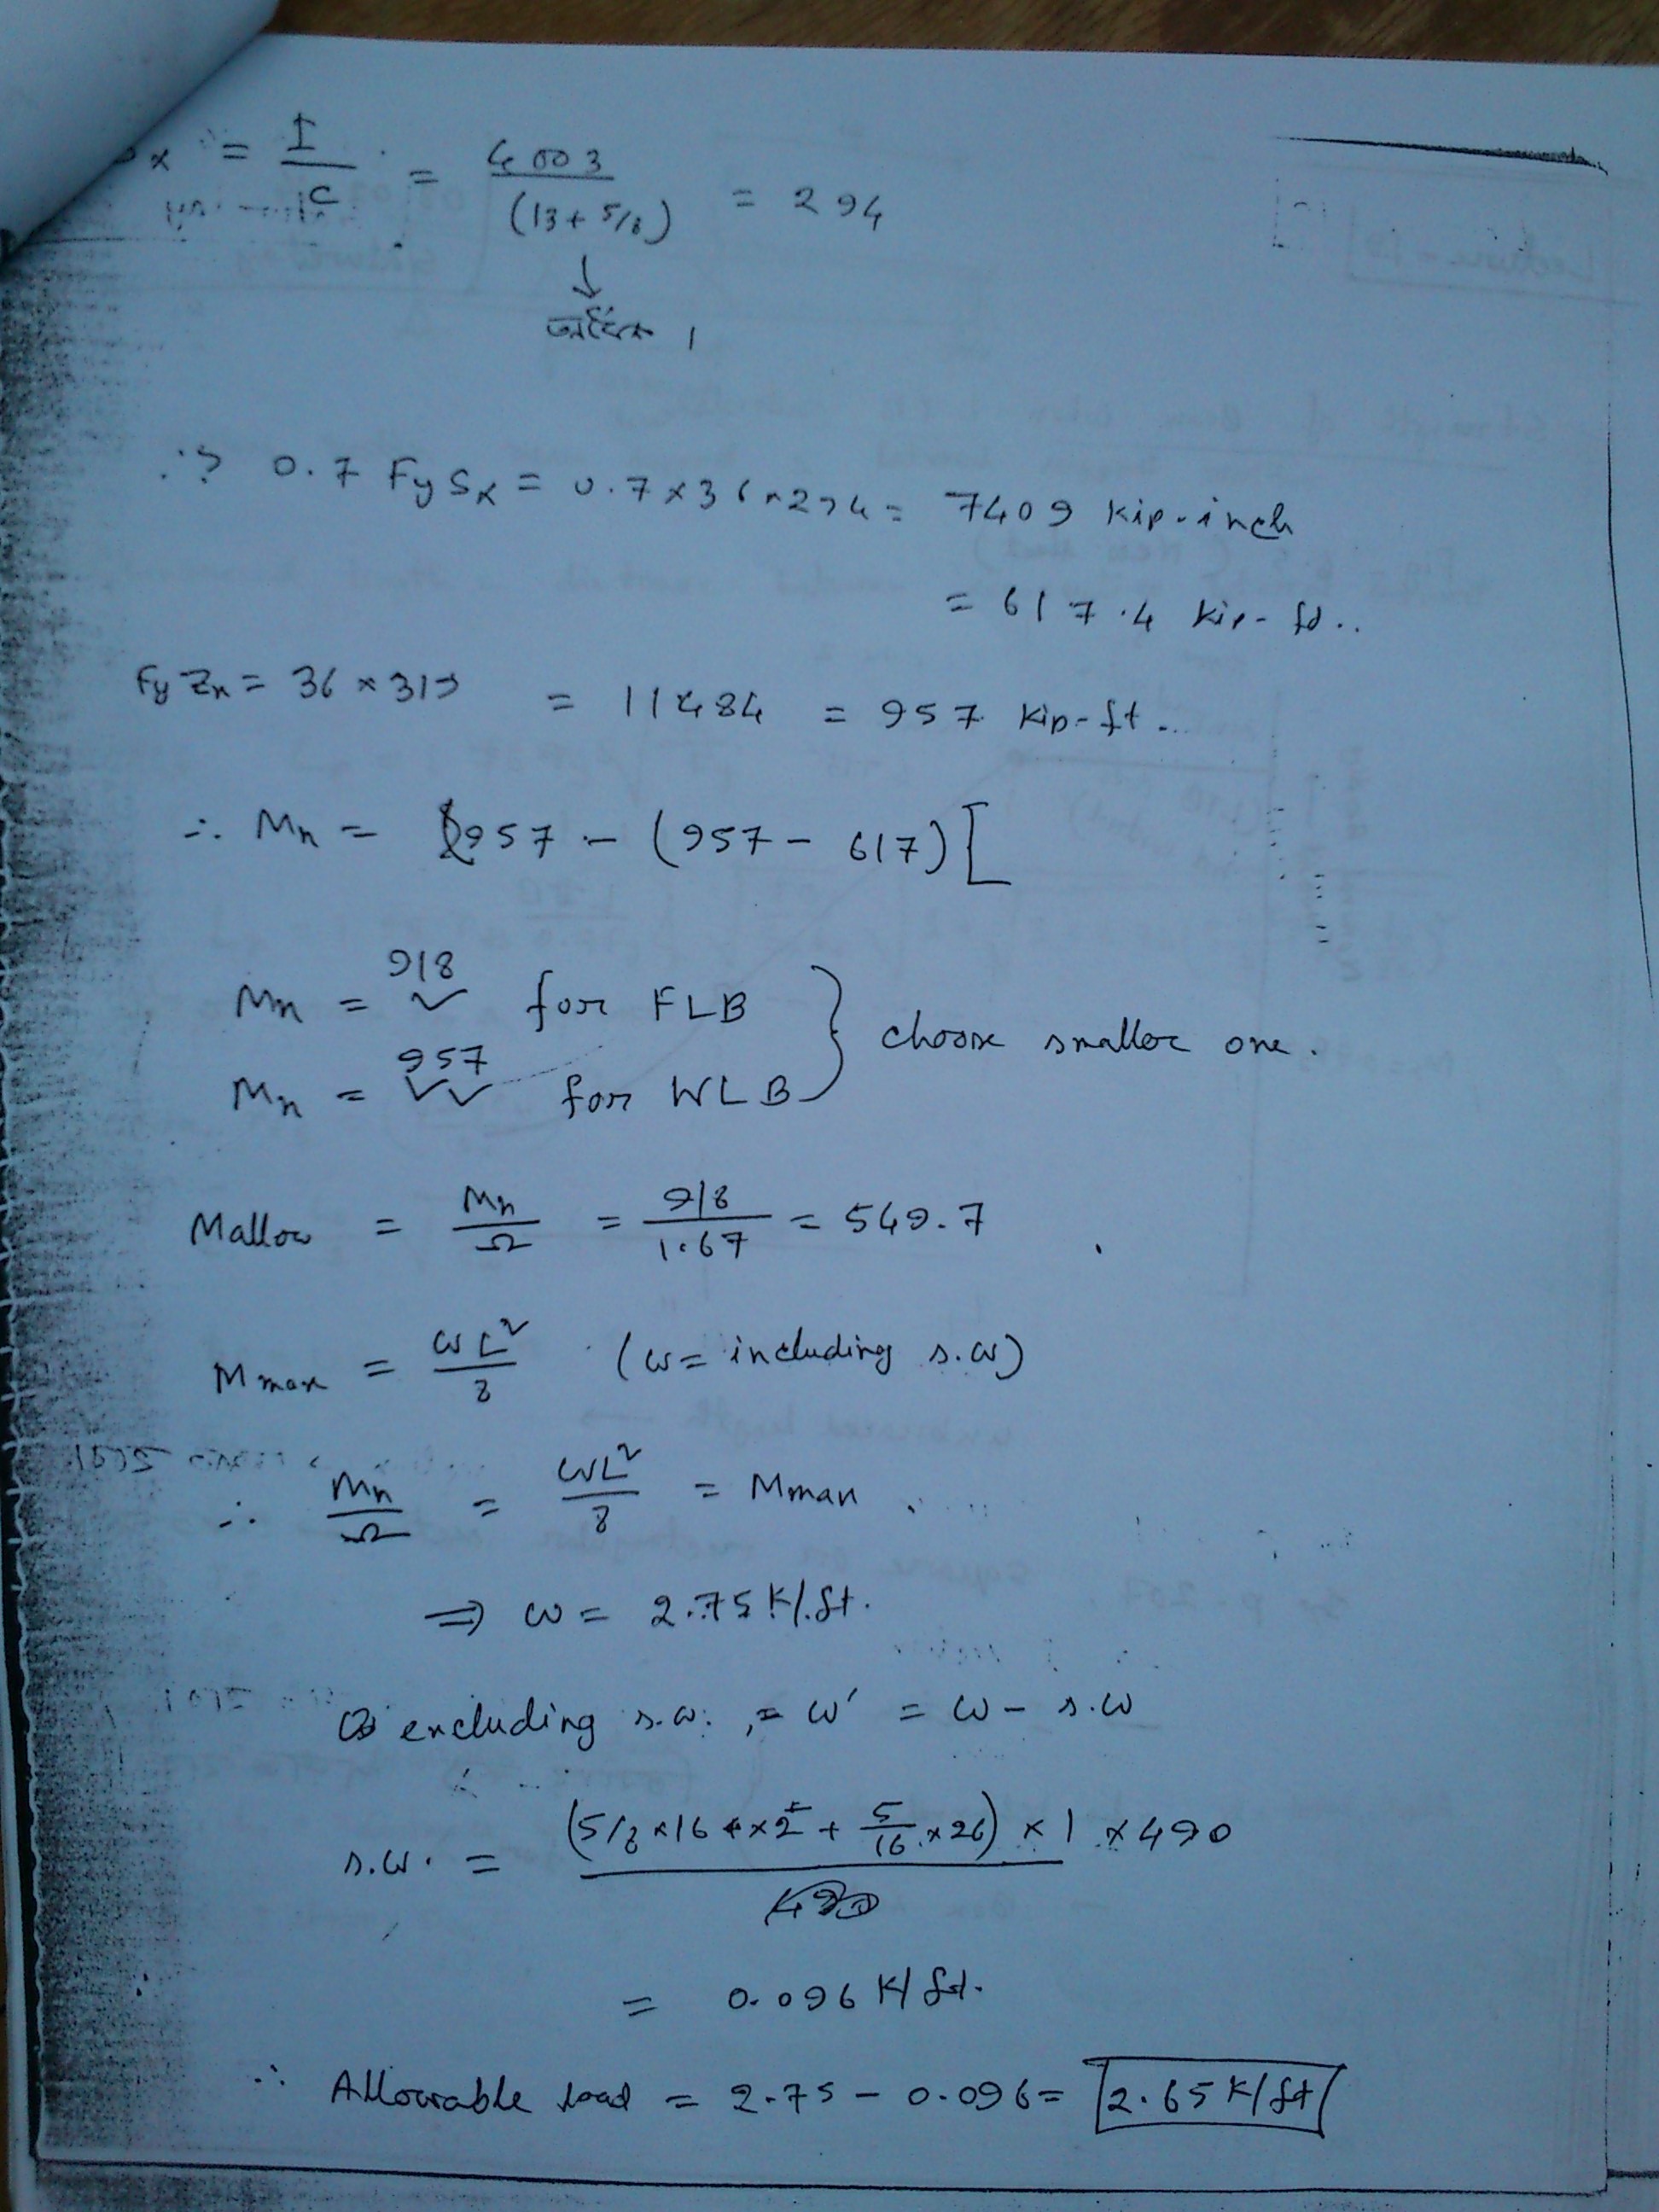 x = I/C = 4003/(13+5/8) = 294
↓
অধিক ।
∴ 0.7 Fy Sx = 0.7×36×294 = 7409 kip-inch
= 617.4 kip-ft..
Fy Zx = 36 × 319 = 11484 = 957 kip-ft.
∴ Mn = 957 - (957 - 617) [
Mn = 918 ✓ for FLB
} choose smaller one.
Mn = 957 ✓✓ for WLB
Mallow = Mn/Ω = 918/1.67 = 549.7
Mmax = ωL²/8 (ω = including s.ω)
∴ Mn/Ω = ωL²/8 = Mmax .
⇒ ω = 2.75 K/ft.
excluding s.ω. = ω' = ω - s.ω
s.ω. = (5/8×16×2 + 5/16×26) × 1 × 490
= 0.096 K/ft.
∴ Allowable load = 2.75 - 0.096 = 2.65 K/ft